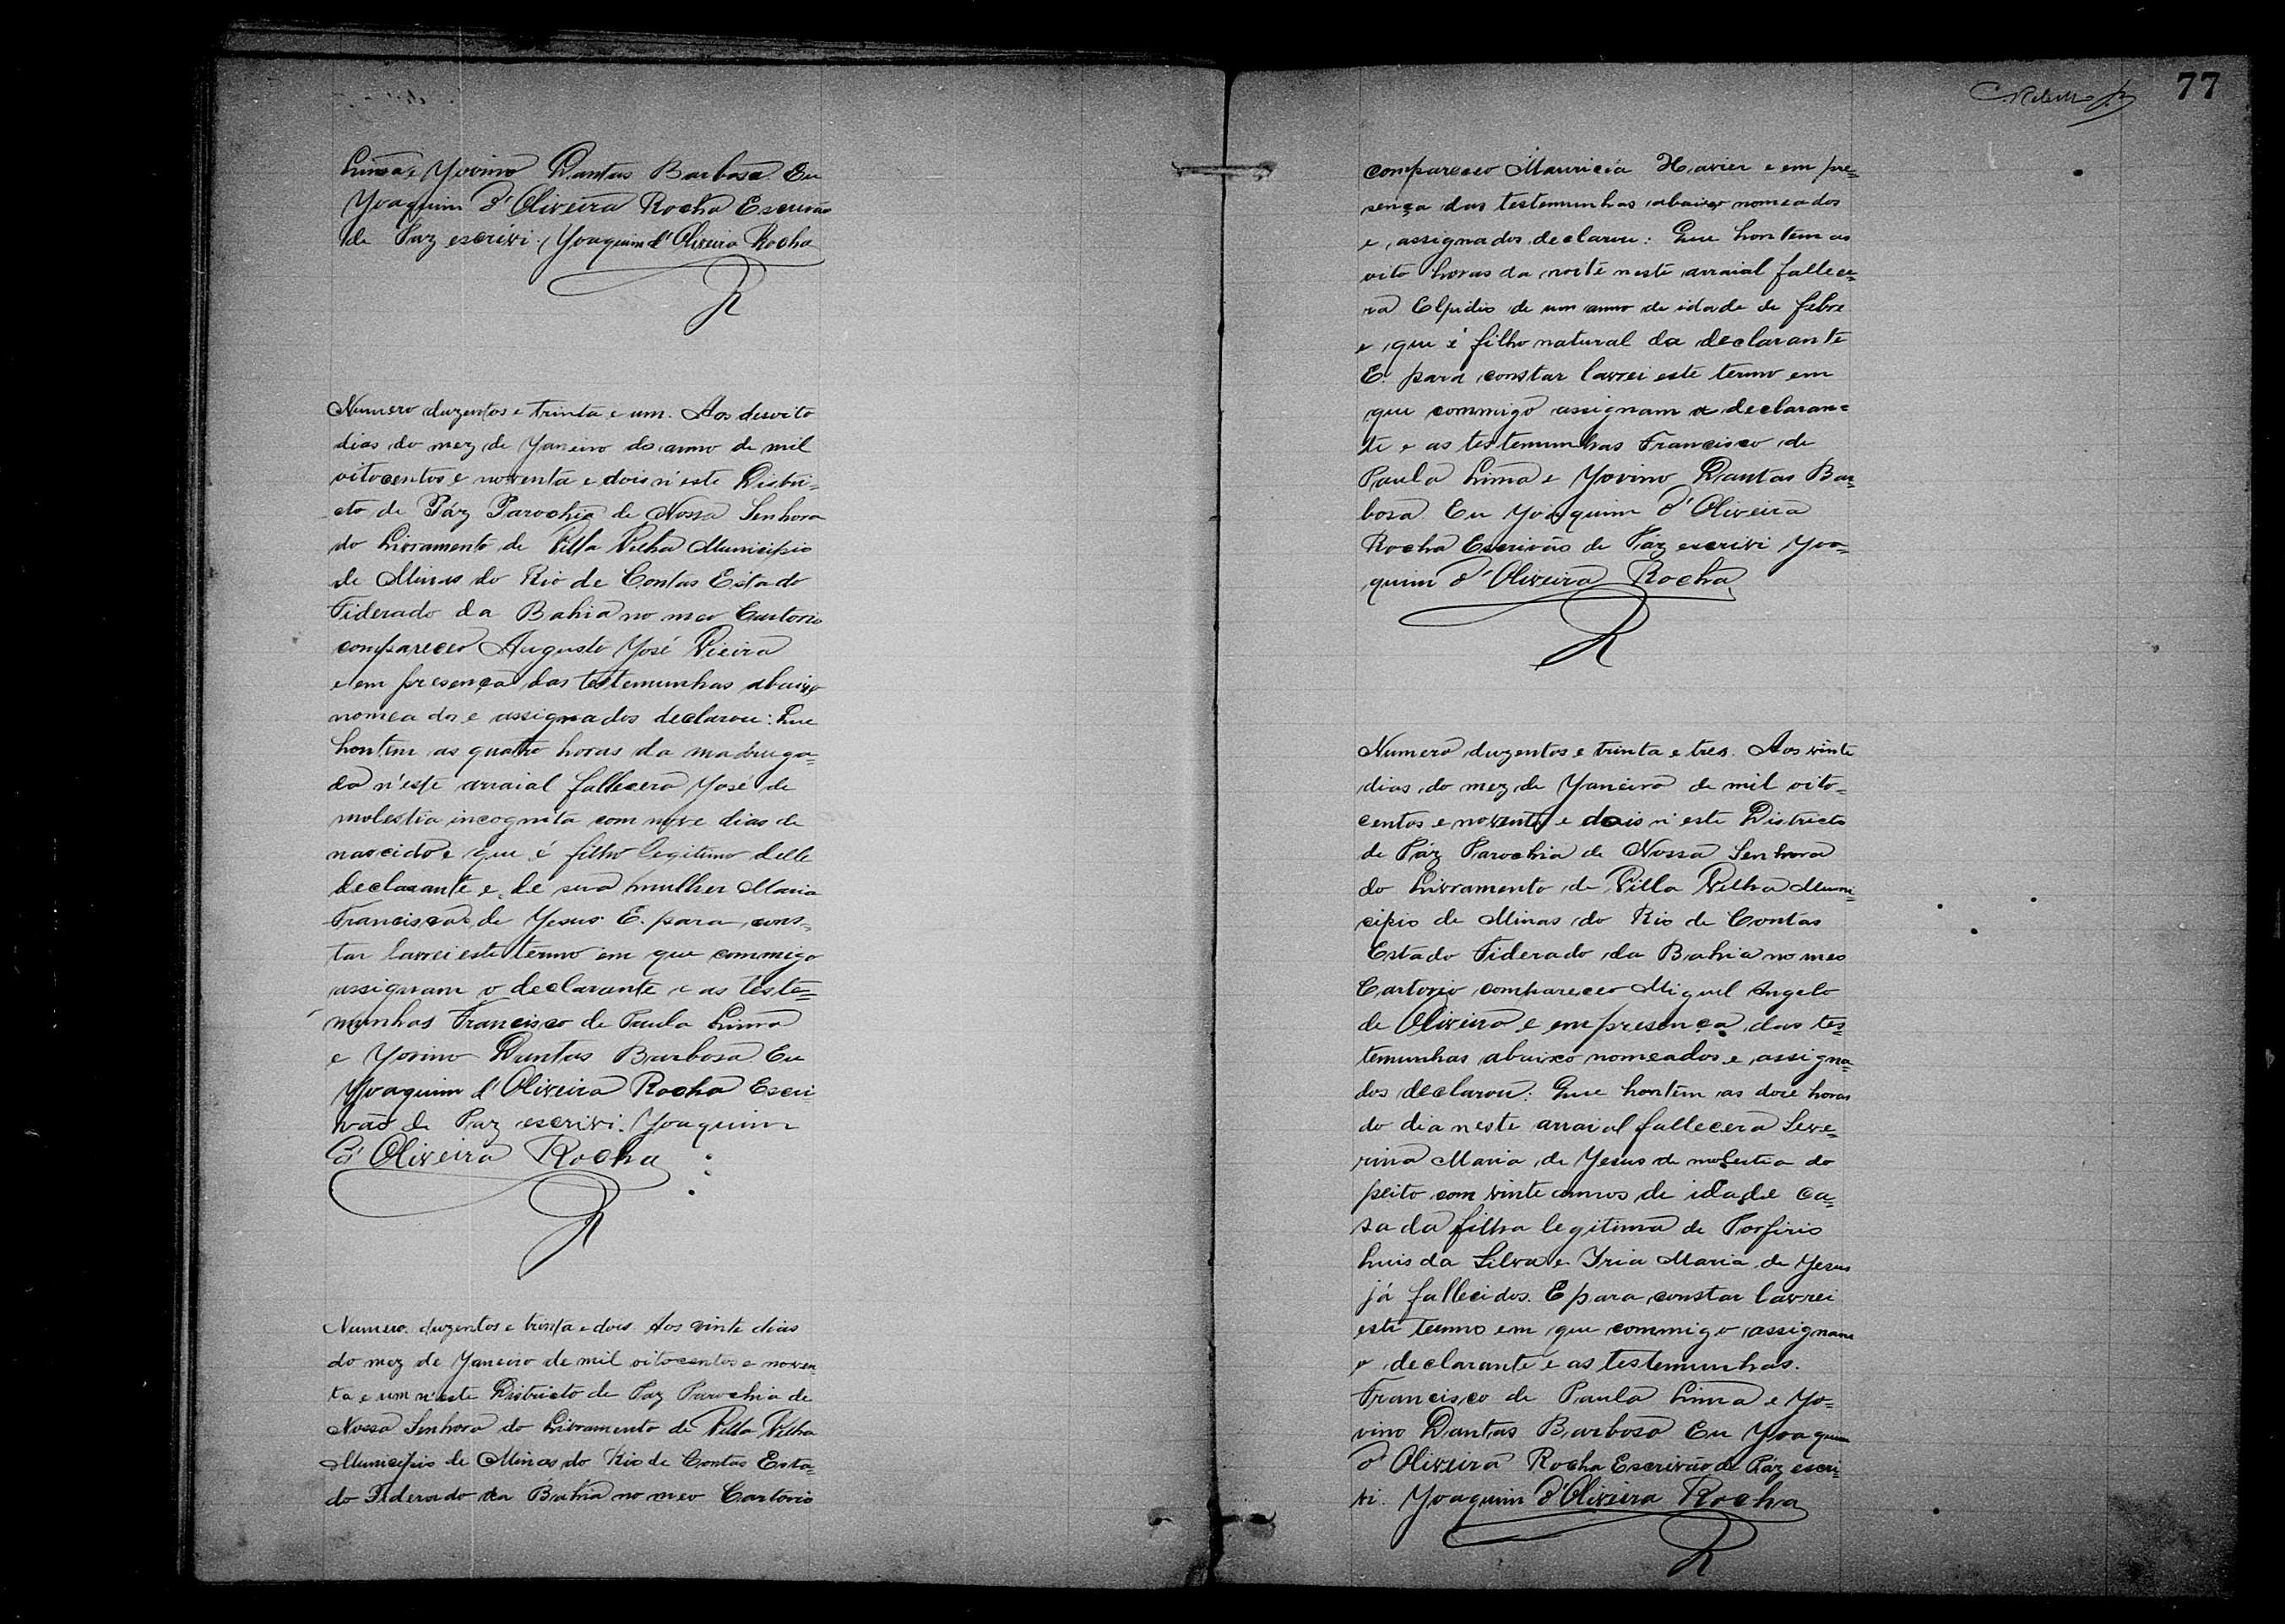 Lima e Yovino Dantas Barbosa Eu
Yoaquim d'Oliveira Rocha Escrivão
de Paz escrivi. Yoaquim d'Oliveira Rocha
R
Numero duzentos e trinta e um. Aos desoito
dias do mez de Yaneiro do anno de mil
oitocentos e noventa e dois n'este Distri=
cto de Páz Parochia de Nossa Senhora
do Livramento de Villa Velha Municipio
de Minas do Rio de Contas Estado
Fiderado da Bahia no meo Cartorio
compareceo Augusto Yosé Vieira
e em presença das testemunhas abaixo
nomeados e assignados declarou: Que
hontem as quatro horas da madruga=
da n'este arraial fallecera Yosé de
molestia incognita com nove dias de
nascido e que é filho legitimo delle
declarante e de sua mulher Maria
Francisca de Yesus. E. para cons=
tar lavrei este termo em que commigo
assignam o declarante e as teste=
munhas Francisco de Paula Lima
e Yovino Dantas Barbosa Eu
Yoaquim d'Oliveira Rocha Escri
vão de Paz escrivi. Yoaquim
d'Oliveira Rocha
R
Numero duzentos e trinta e dois Aos vinte dias
do mez de Yaneiro de mil oitocentos e noven
ta e um n'este Districto de Paz Parochia de
Nossa Senhora do Livramento de Villa Velha
Municipio de Minas do Rio de Contas Esta=
do Fiderado da Bahia no meo Cartorio
77
compareceo Mauricia Xavier e em pre=
sença das testemunhas abaixo nomeados
e assignados declarou: Que hontem as
oito horas da noite neste arraial fallece=
ra Elpidio de um anno de idade de febre
e que é filho natural da declarante
E. para constar lavrei este termo em
que commigo assignam a declaran=
te e as testemunhas Francisco de
Paula Lima e Yovino Dantas Bar=
bosa. Eu Yoaquim d'Oliveira
Rocha Escrivão de Páz escrivi Yoa=
quim d'Oliveira Rocha
R
Numero duzentos e trinta e tres. Aos vinte
dias do mez de Yaneiro de mil oito=
centos e noventa e dois n'este Districto
de Páz Parochia de Nossa Senhora
do Livramento de Villa Velha Muni
cipio de Minas do Rio de Contas
Estado Fiderado da Bahia no meo
Cartorio compareceo Miguel Angelo
de Oliveira e em presença das tes=
temunhas abaixo nomeados e assigna=
dos declarou: Que hontem as doze horas
do dia neste arraial fallecera Seve=
rina Maria de Yesus de molestia do
peito com vinte annos de idade ca=
sada filha legitima de Porfirio
Luis da Silva e Iria Maria de Yesus
já fallecidos. E para constar lavrei
este termo em que commigo assignam
o declarante e as testemunhas.
Francisco de Paula Lima e Yo=
vino Dantas Barbosa Eu Yoaquim
d'Oliveira Rocha Escrivão de Páz escri=
vi. Yoaquim d'Oliveira Rocha
R